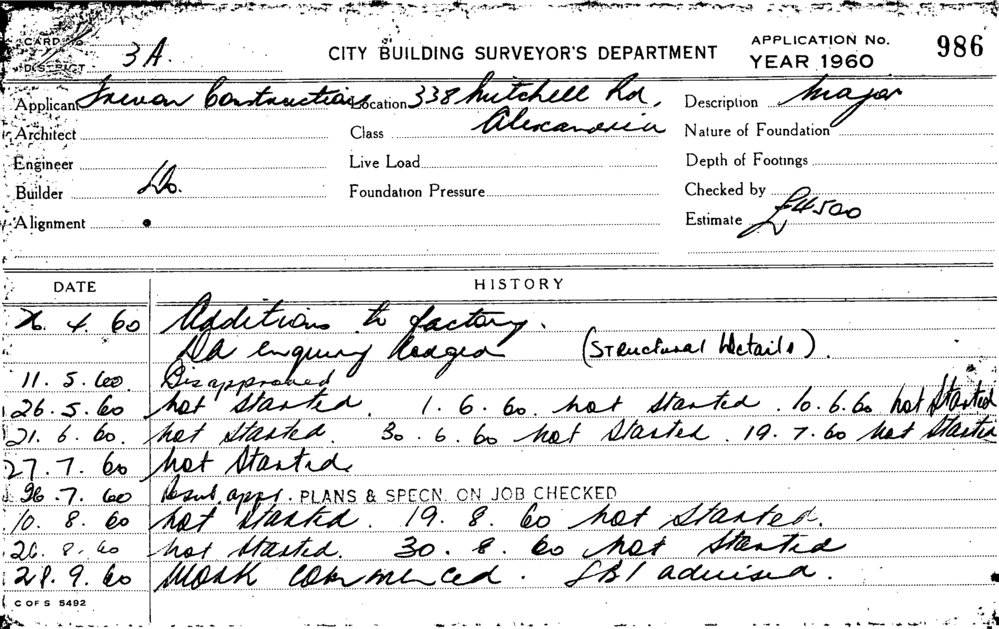 CARD No.
DISTRICT 3A.
CITY BUILDING SURVEYOR'S DEPARTMENT
APPLICATION No. 986
YEAR 1960
Applicant Trevor Constructions Location 338 Mitchell Rd, Description Major
Architect Class Alexandria Nature of Foundation
Engineer Live Load Depth of Footings
Builder Do. Foundation Pressure Checked by
Alignment Estimate £4500
DATE HISTORY
26. 4. 60 Additions to factory.
DA enquiry lodged (Structural Details).
11. 5. 60 Disapproved
26. 5. 60 not started. 1. 6. 60. not started. 10. 6. 60 not started
21. 6. 60. not started. 30. 6. 60 not started. 19. 7. 60 not started
27. 7. 60 not started.
7. 60 appr. PLANS & SPECN. ON JOB CHECKED
10. 8. 60 not started. 19. 8. 60 not started.
26. 8. 60 not started. 30. 8. 60 not started
28. 9. 60 Work commenced. advised.
C OF S 5492